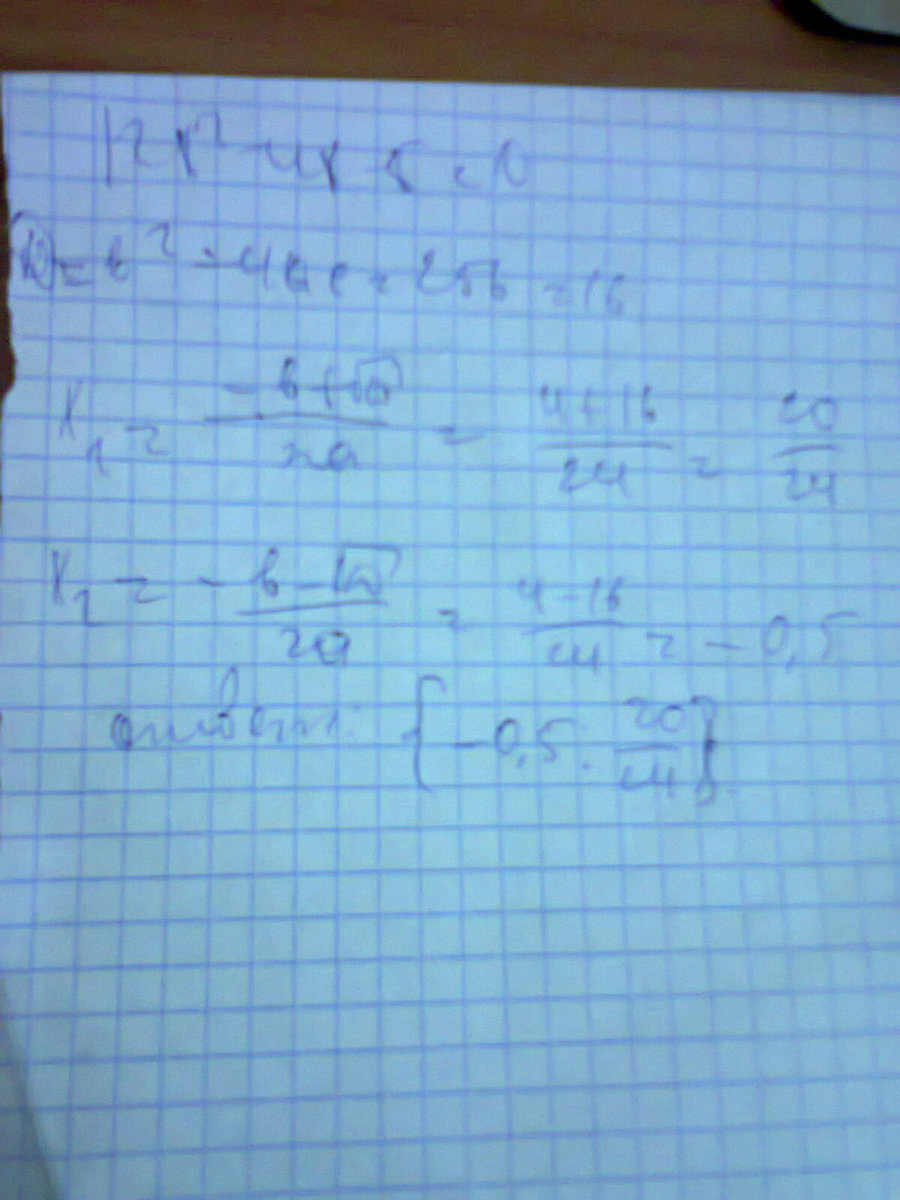 12x² - 4x - 5 = 0
D = b² - 4ac = 256 = 16
x₁ = (-b + √D) / 2a = (4 + 16) / 24 = 20 / 24
x₂ = (-b - √D) / 2a = (4 - 16) / 24 = -0,5
ответ: {-0,5; 20/24}